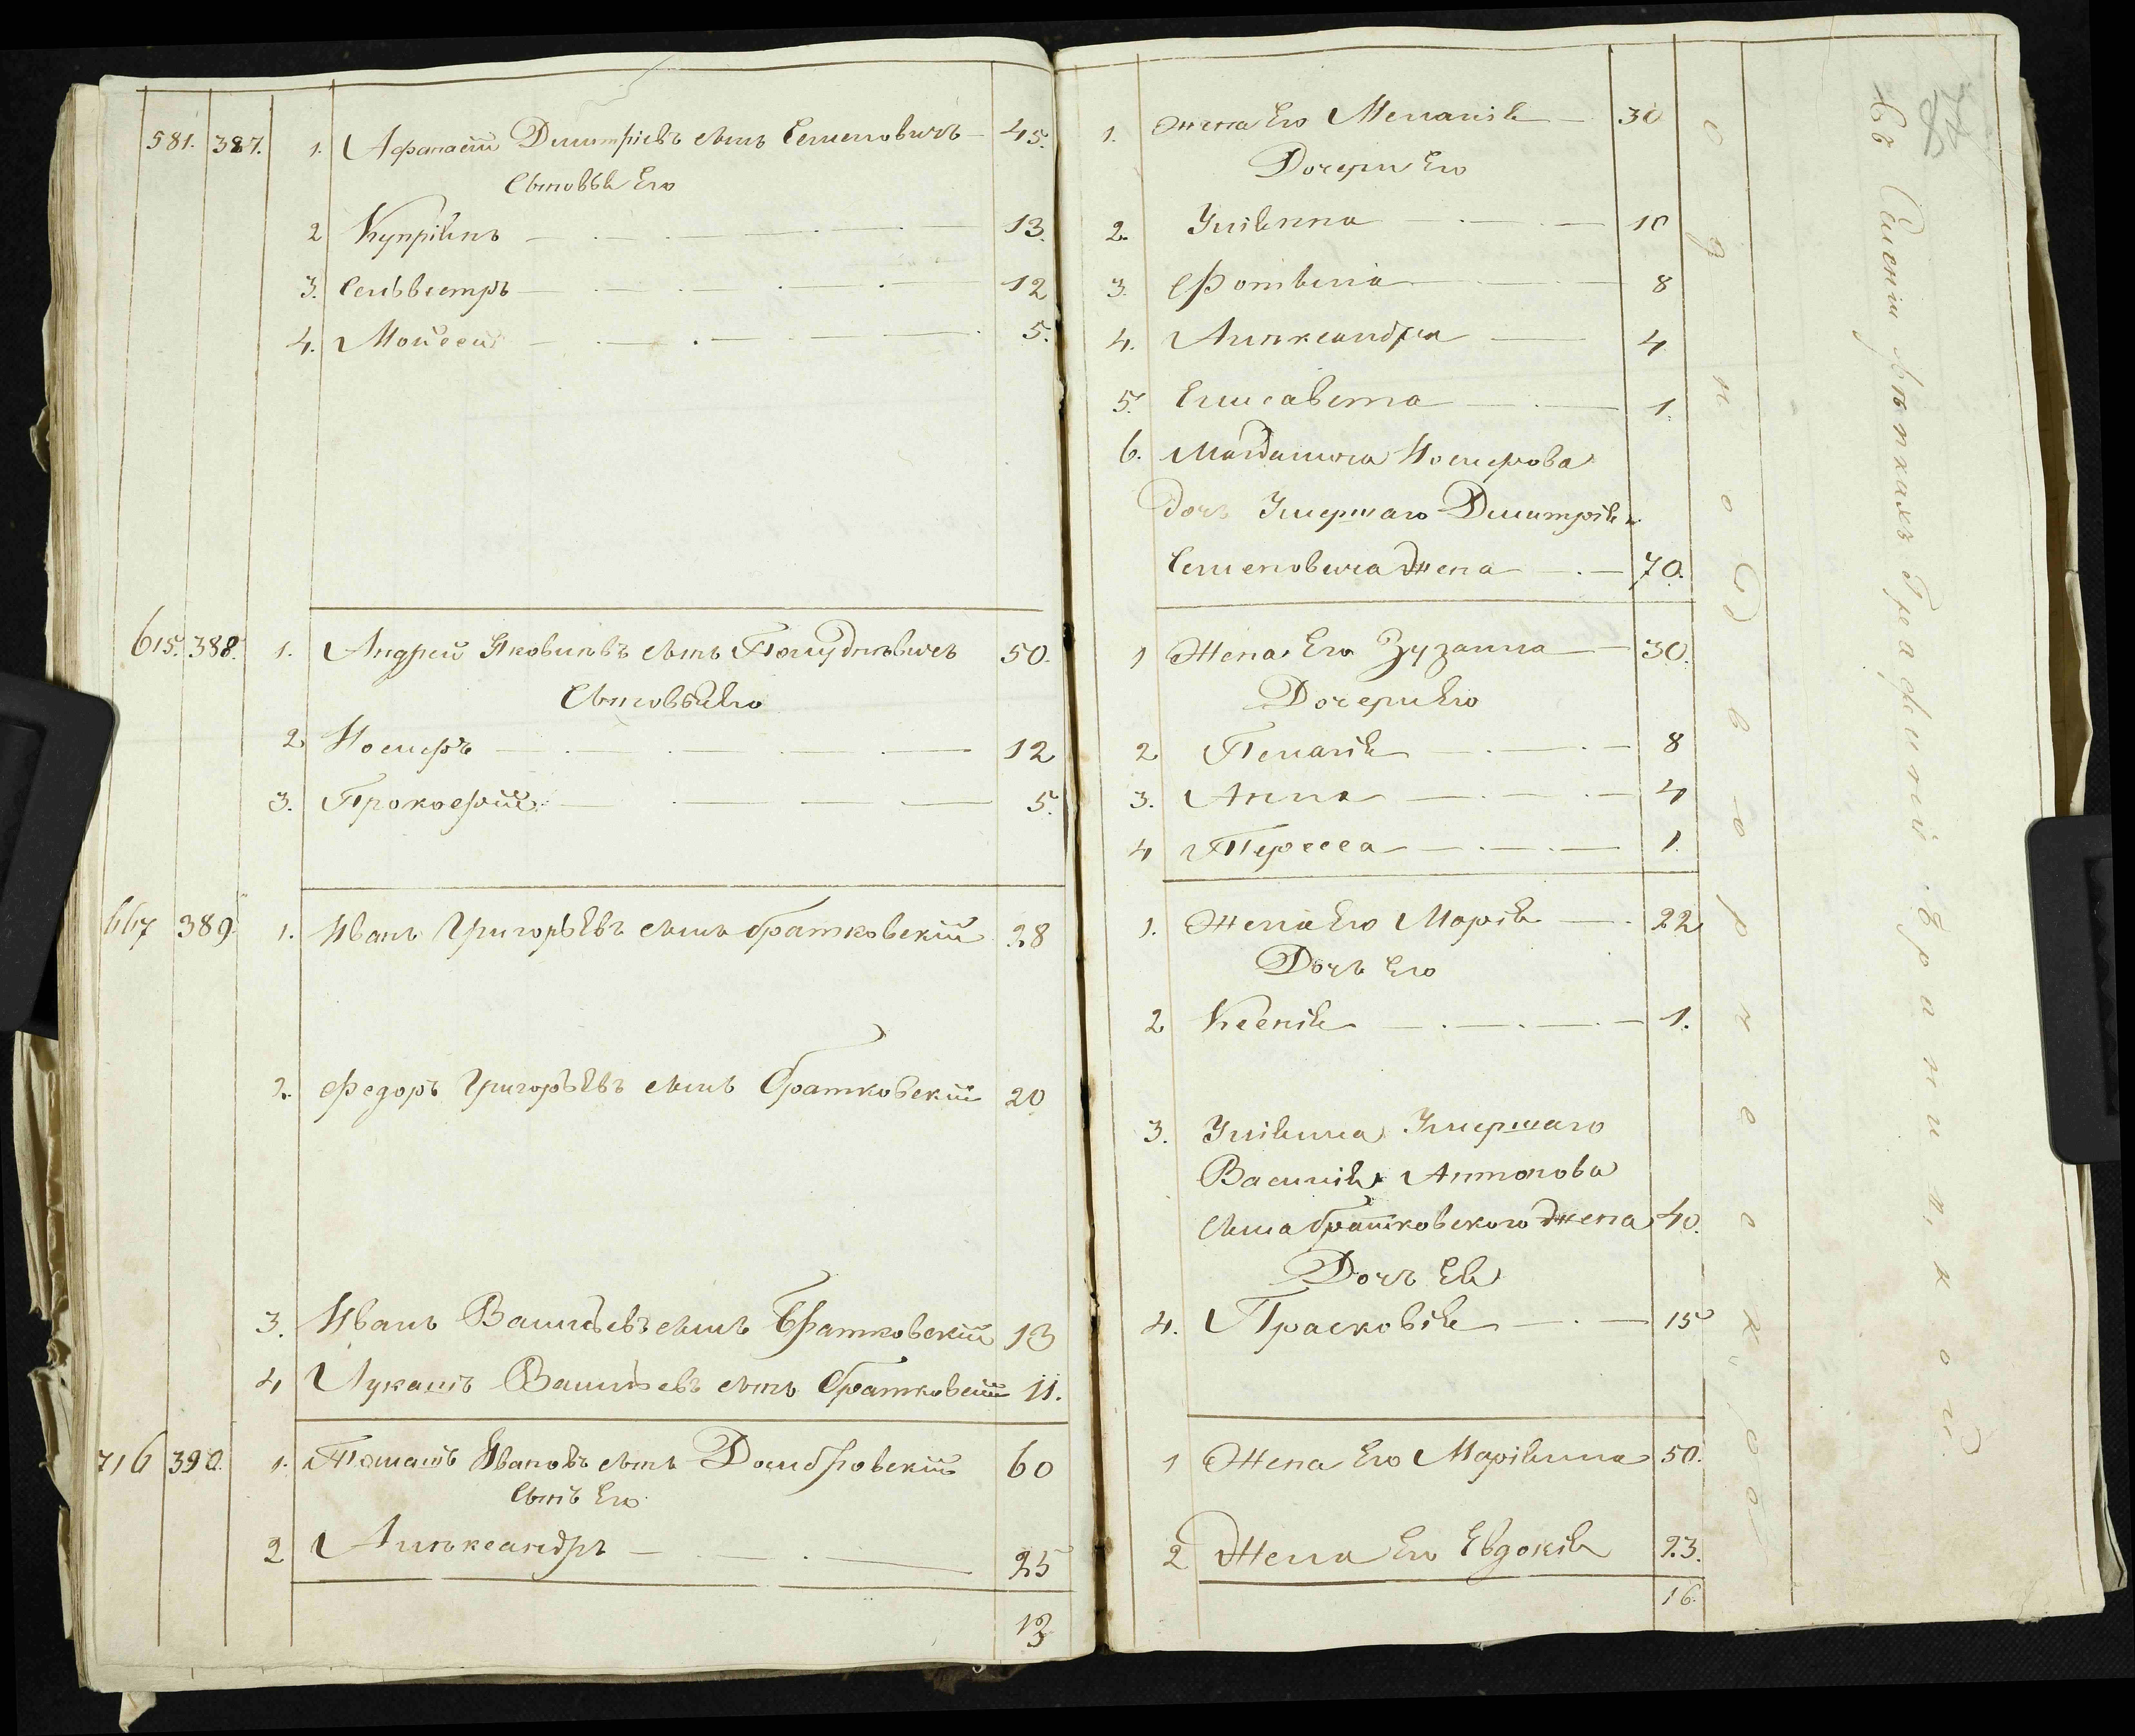 581. 387. 1. Афанасій Дмитріевъ сынъ Семеновичъ — 45.
Сыновья Его
2 Купріянъ — 13.
3. Сельвестръ — 12
4. Мойсей — 5.
615. 388. 1. Андрей Яковлевъ сынъ Полудневичъ 50.
Сыновья Его
2. Іосифъ — 12
3. Прокофій — 5.
667 389. 1. Иванъ Григорьевъ сынъ Братковскій 28
2. Федоръ Григорьевъ сынъ Братковскій 20
3. Иванъ Васильевъ сынъ Братковскій 13
4 Лукашъ Васильевъ сынъ Братковскій 11.
716 390. 1. Томашъ Ивановъ сынъ Домбровскій 60
Сынъ Его
2 Александръ — 25
13
1. Жена Его Меланія — 30
Дочери Его
2. Уліянна — 10
3. Фотинія — 8
4. Александра — 4
5. Елисавета — 1.
6. Магдалина Іосифова
дочь Умершаго Дмитрія
Семеновича Жена — 70.
1 Жена Его Зузанна — 30.
Дочери Его
2 Пелагія — 8
3. Анна — 4
4 Тересса — 1.
1. Жена Его Марія — 22
Дочь Его
2 Ксенія — 1.
3. Уліянна Умершаго
Василія Антонова
Сына Братковскаго Жена 40.
Дочь Ея
4. Прасковія — 15
1 Жена Его Маріянна 50.
2 Жена Его Евдокія 23.
16.
Однодворческ
Въ Селеніи